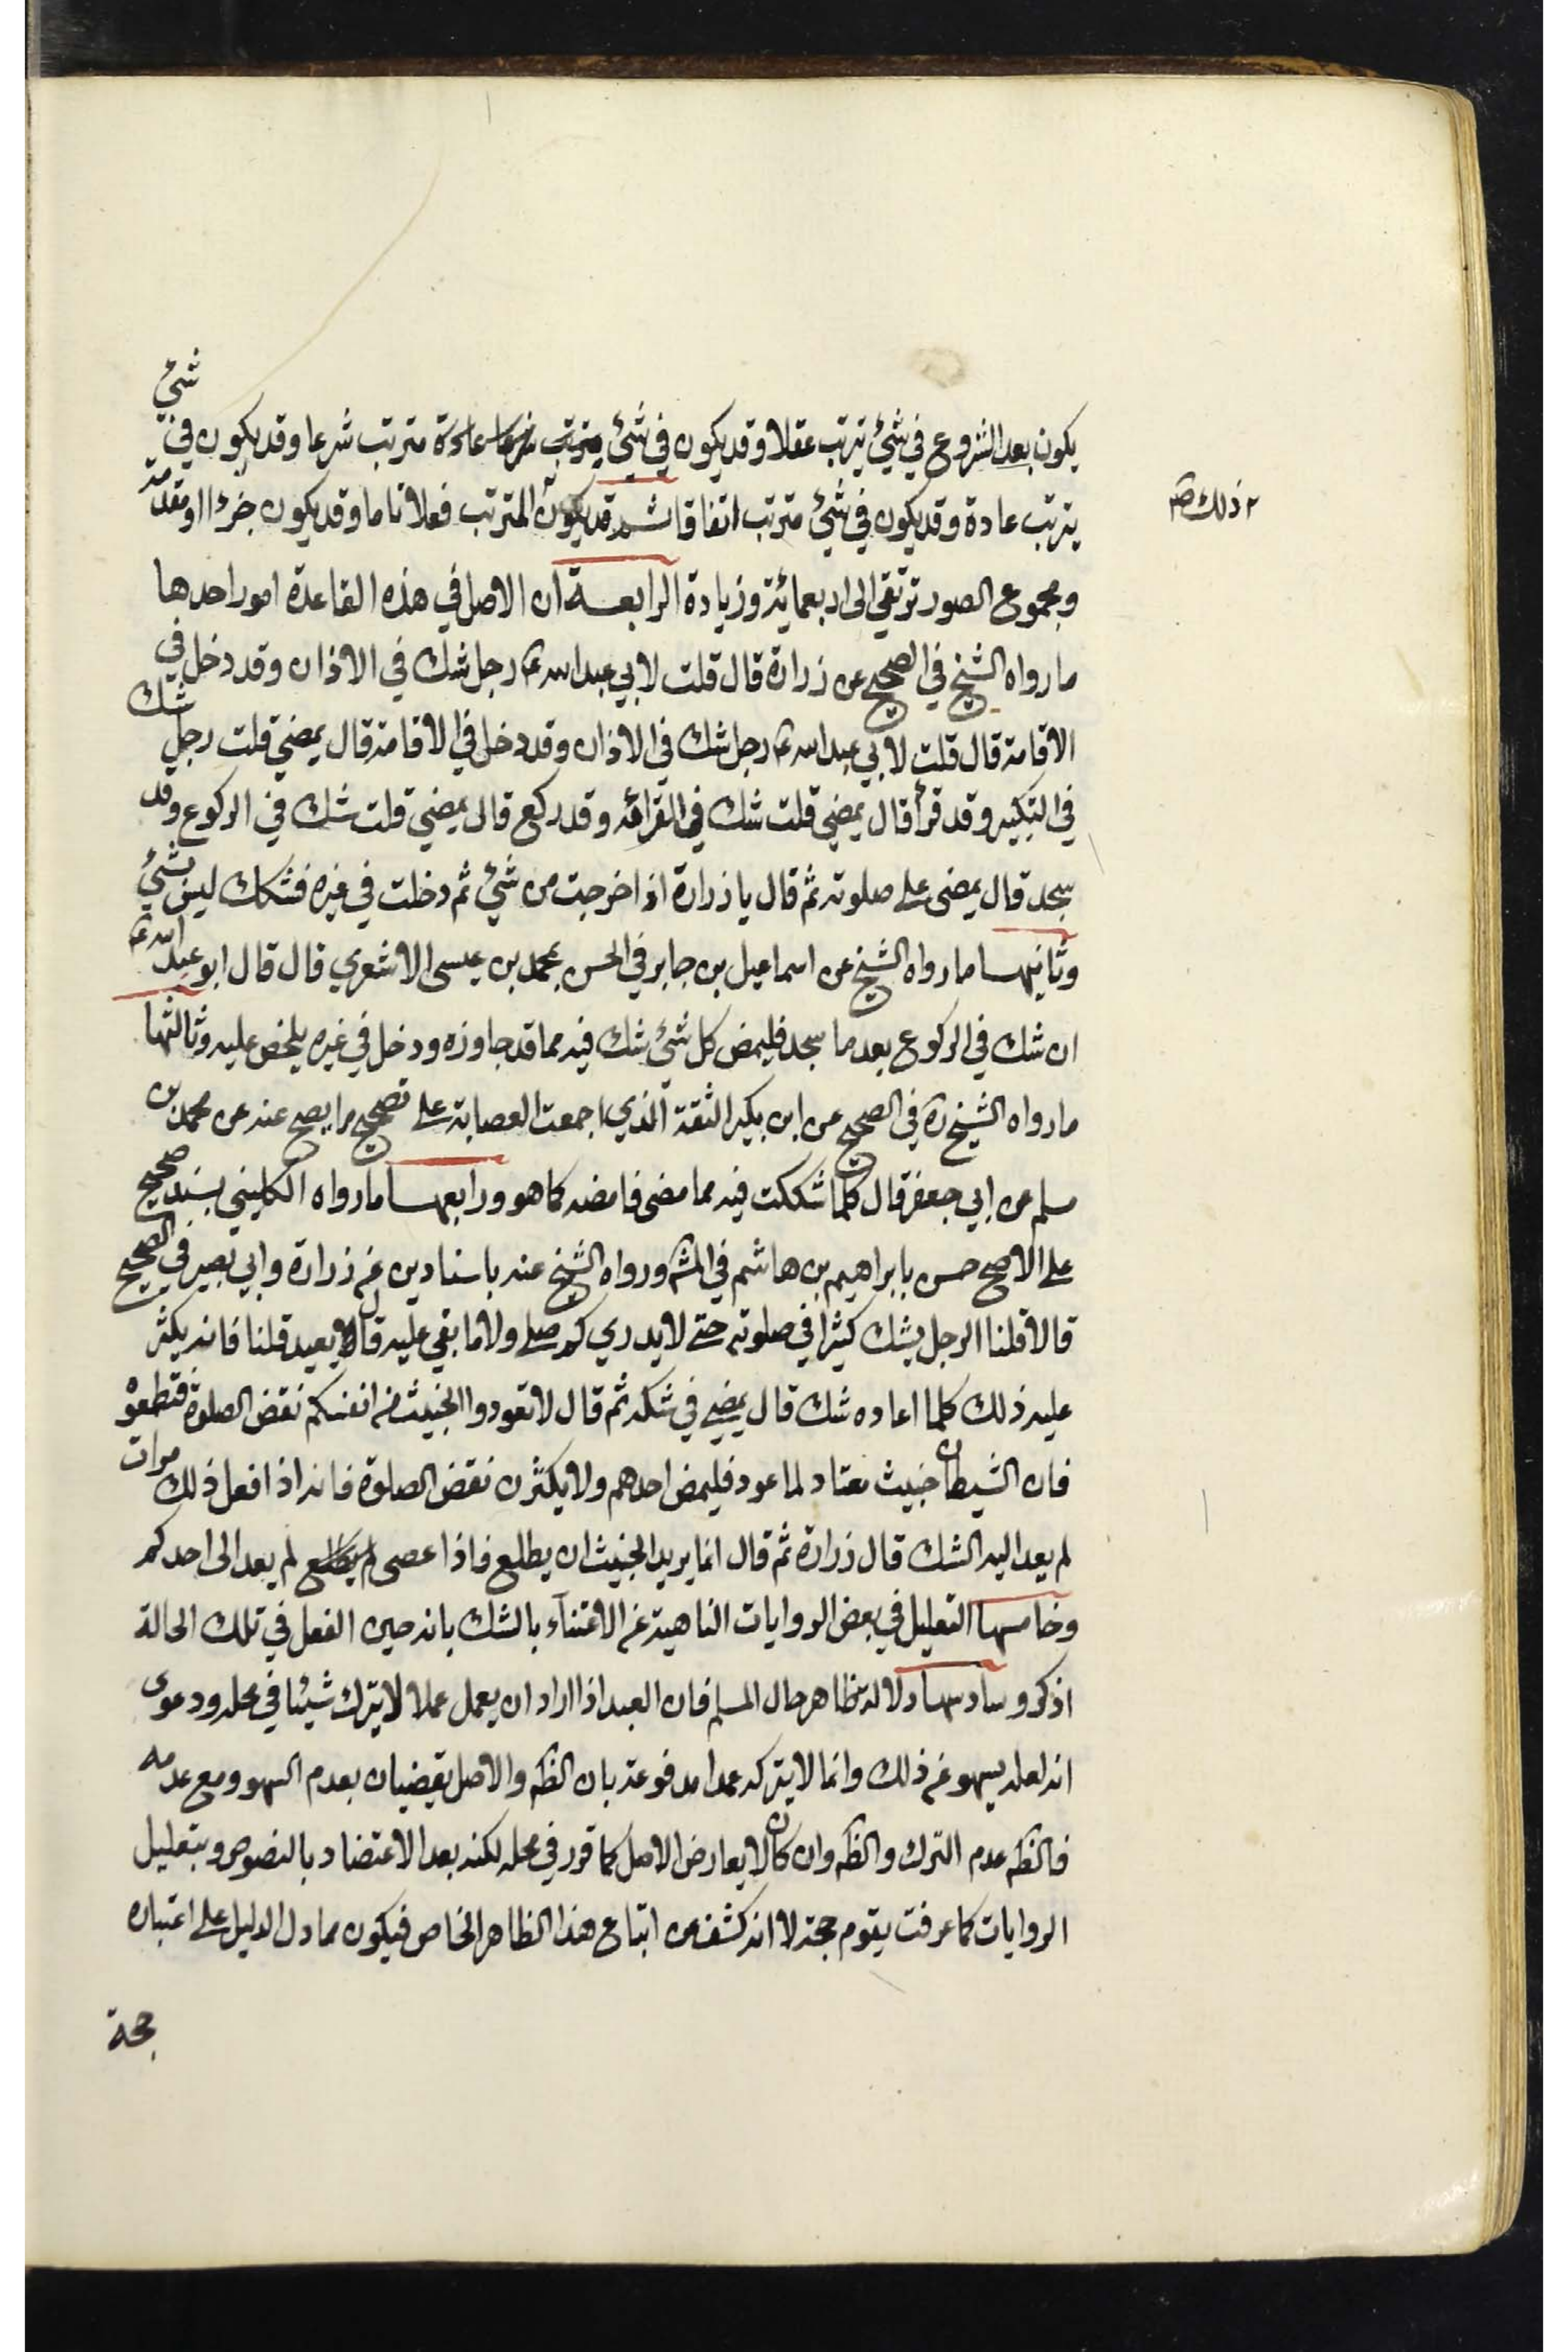 يكون بعد الشروع في شيء يترتب عقلا وقد يكون في شيء مترتب شرعا وقد يكون في شيء
يترتب عادة وقد يكون في شيء مترتب اتفاقا ثم قد يكون المترتب فعلا تاما وقد يكون جزءا او مقدمة
٢ ذلك صح
ومجموع الصور ترتقي الى اربعمائة وزيادة الرابعة ان الاصل في هذه القاعدة امور احدها
ما رواه الشيخ في الصحيح عن زرارة قال قلت لابي عبد الله ع رجل شك في الاذان وقد دخل في
الاقامة قال قلت لابي عبد الله ع رجل شك في الاذان وقد دخل في الاقامة قال يمضي قلت رجل شك
في التكبير وقد قرأ قال يمضي قلت شك في القرائة وقد ركع قال يمضي قلت شك في الركوع وقد
سجد قال يمضى على صلوته ثم قال يا زرارة اذا خرجت من شيء ثم دخلت في غيره فشكك ليس بشيء
وثانيها ما رواه الشيخ عن اسماعيل بن جابر في الحسن بمحمد بن عيسى الاشعري قال قال ابو عبد الله ع
ان شك في الركوع بعد ما سجد فليمض كل شيء شك فيه مما قد جاوزه ودخل في غيره يلمض عليه وثالثها
ما رواه الشيخ ره في الصحيح عن ابن بكير الثقة الذي اجمعت العصابة على تصحيح ما يصح عنه عن محمد بن
مسلم عن ابي جعفر قال كلما شككت فيه مما مضى فامضه كما هو ورابعها ما رواه الكليني بسند صحيح
على الاصح حسن بابراهيم بن هاشم في المشه ورواه الشيخ عنه باسنادين عن زرارة وابي بصير في الصحيح
قالا قلنا الرجل يشك كثيرا في صلوته حتى لا يدري كم صلى ولا ما بقي عليه قال يعيد قلنا فانه يكثر
عليه ذلك كلما اعاده شك قال يمضي في شكه ثم قال لا تعودوا الخبيث من انفسكم نقض الصلوة فتطعموه
فان الشيطان خبيث معتاد لما عود فليمض احدهم ولا يكثرن نقض الصلوة فانه اذا فعل ذلك مرات
لم يعد اليه الشك قال زرارة ثم قال انما يريد الخبيث ان يطاع فاذا عصى لم يعد الى احدكم
وخامسها التعليل في بعض الروايات الناهية عن الاعتناء بالشك بانه حين الفعل في تلك الحالة
اذكر وسادسها دلالة ظاهر حال المسلم فان العبد اذا اراد ان يعمل عملا لا يترك شيئا في محله ودعوى
انه لعله يسهو عن ذلك وانما لا يتركه عمدا مدفوعة بان الظه والاصل يقضيان بعدم السهو ومع عدمه
فالظه عدم الترك والظه وان كان لا يعارض الاصل كما قرر في محله لكنه بعد الاعتضاد بالنصوص وبتعليل
الروايات كما عرفت يقوم حجة لا انه كشف عن اتباع هذا الظاهر الخاص فيكون مما دل الدليل على اعتباره
حجة